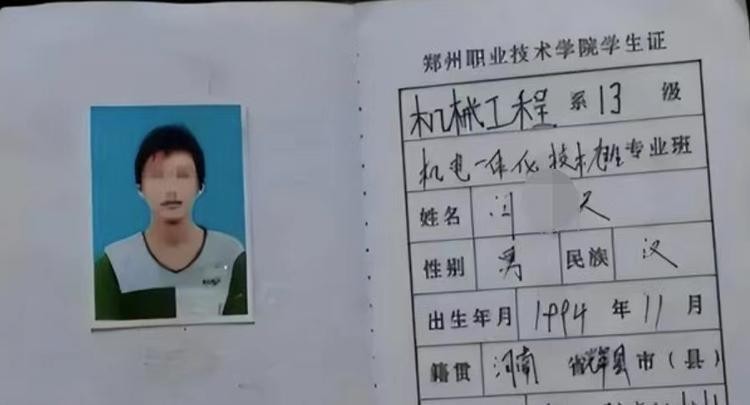 郑州职业技术学院学生证
机械工程系13级
机电一体化技术专业班
姓名 闫 天
性别 男 民族 汉
出生年月 1994年11月
籍贯 河南省 县市(县)